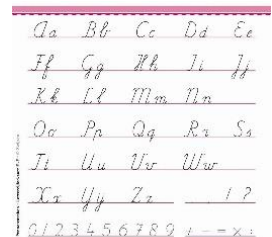 Aa Bb Cc Dd Ee
Ff Gg Hh Ii Jj
Kk Ll Mm Nn
Oo Pp Qq Rr Ss
Tt Uu Vv Ww
Xx Yy Zz ! ?
0 1 2 3 4 5 6 7 8 9 + - = × :